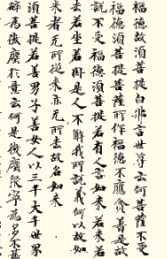 福德故須菩提白佛言世尊云何菩薩不受
福德須菩提菩薩所作福德不應貪著是故
說不受福德須菩提若有人言如来若来若
去若坐若卧是人不解我所說義何以故如
来者无所從来亦无所去故名如来
須菩提若善男子善女人以三千大千世界
碎為微塵於意云何是微塵眾寧為多不甚